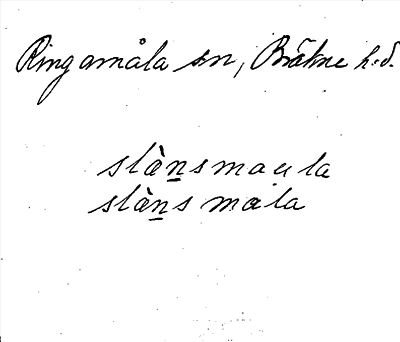 Ringamåla sn, Bräkne h.d.
slàn̲smaula
slàn̲s måla